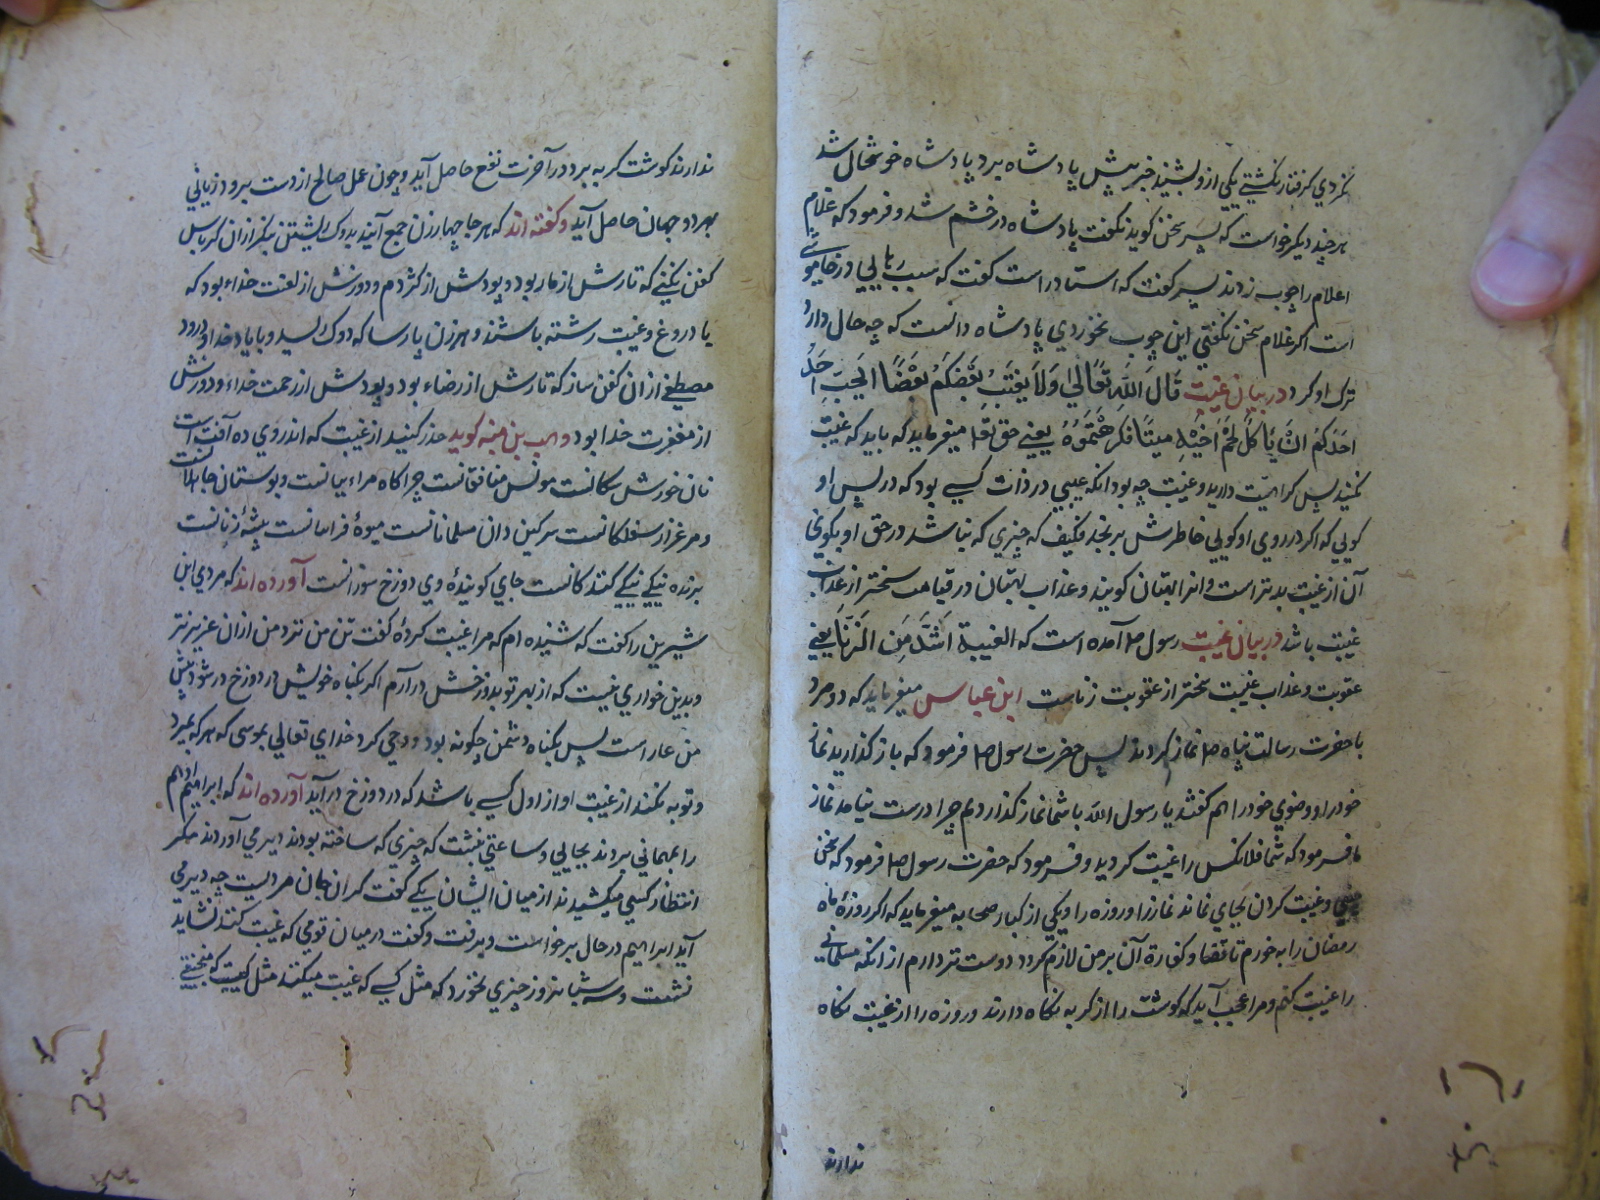 نکردي گرفتار نکشتي يکي ازو بشنيد خبر پيش پادشاه برد پادشاه خوشحال شد
هر چند ديکر خواست که پسر سخن کويد نکفت پادشاه در خشم شد و فرمود که غلام
اعلام را چوب زدند پسر کفت که استاد راست کفت که سبب رهايي در خاموشي
است اکر غلام سخن نکفتي اين چوب نخوردي پادشاه دانست که چه حال دارد
ترک او کرد در بيان غيبت قال الله تعالي ولا يغتب بعضکم بعضا ايحب احد
احدکم ان ياکل لحم اخيه ميتا فکرهتموه يعني حق تعا ميفرمايد که بايد که غيبت
نکنيد پس کراهيت داريد و غيبت چه بود انکه عيبي در ذات کسي بود که در پس او
کويي که اکر در روي او کويي خاطرش برنجد فکيف که چيزي که نباشد در حق او بکوئي
آن از غيبت بدتر است و انرا بهتان کويند و عذاب بهتان در قيامت سختر از عذاب
غيبت باشد در بيان غيبت رسول صلم آمده است که الغيبة اشد من الزنا يعني
عقوبت و عذاب غيبت سختر از عقوبت زناست ابن عباس ميفرمايد که دو مرد
با حضرت رسالت پناه صلم نماز کردند پس حضرت رسول صلم فرمود که باز کذاريد نماز
خود را و وضوي خود را هم کفتند يا رسول الله با شما نماز کذارديم چرا درست نيامد نماز
ما فرمود که شما فلانکس را غيبت کرديد و فرمود که حضرت رسول صلم فرمود که سخن
و غيبت کردن بجاي نماند نماز را و روزه را و يکي از کبار صحابه ميفرمايد که اکر روزۀ ماه
رمضان را به خورم تا قضا و کفارة آن بر من لازم کردد دوست تر دارم از انکه مسلماني
را غيبت کنم و مرا عجب آيد که کوشت را از کربه نکاه دارند و روزه را از غيبت نکاه
ندارند
ندارند کوشت کربه ببرد در آخرت نفع حاصل آيد و چون عمل صالح از دست برود زياني
بهر دو جهان حاصل آيد و کفته اند که هر جا چهار زن جمع آيند بدوک ريشتن بنکر ازان کرباس
کفن يکني که تارش از مار بود و پودش از کژدم و دوزش از لعنت خداء بود که
با دروغ و غيبت رشته باشند و هر زن پارسا که دوک ريسد و با ياد خدا و درود
مصطفي ازان کفن ساز که تارش از رضاء بود و پودش از رحمت خداء و دوزش
از مغفرت خدا بود وهب بن منبه کويد حذر کنيد از غيبت که اندروي ده آفت است
نان خورش سکانست مونس منافقانست چراکاه مراء ييانست و بوستان جاهلانست
و مرغزار سفلکانست سرکين دان مسلمانانست ميوۀ فراعانست پيشۀ زنانست
برنده نيکي نيکي کنندکانست جاي کويندۀ وي دوزخ سوزانست آورده اند که مردي ابن
شيرين را کفت که شنيده ام که مرا غيبت کردۀ کفت تن من نزد من ازان عزيزتر
و بدين خواري نيست که از بهر تو بدوزخش درآرم اکر بکناه خويش در دوزخ در شود پيش
من عار است پس بکناه دشمن چکونه بود و وحي کرد خداي تعالي بموسي که هر که بميرد
و توبه نکند از غيبت او از اول کسي باشد که در دوزخ درآيد آورده اند که ابراهيم ادهم
را بمهماني بردند بجايي و ساعتي نشست که چيزي که ساخته بودند دير مي آوردند مکر
انتظار کسي ميکشيدند از ميان ايشان يکي کفت کران جان مرديست چه دير مي
آيد ابراهيم در حال برخواست و برفت و کفت در ميان قومي که غيبت کنند نشايد
نشست و سه شبانروز چيزي نخورد که مثل کسي که غيبت ميکند مثل کيست که منجنيقي